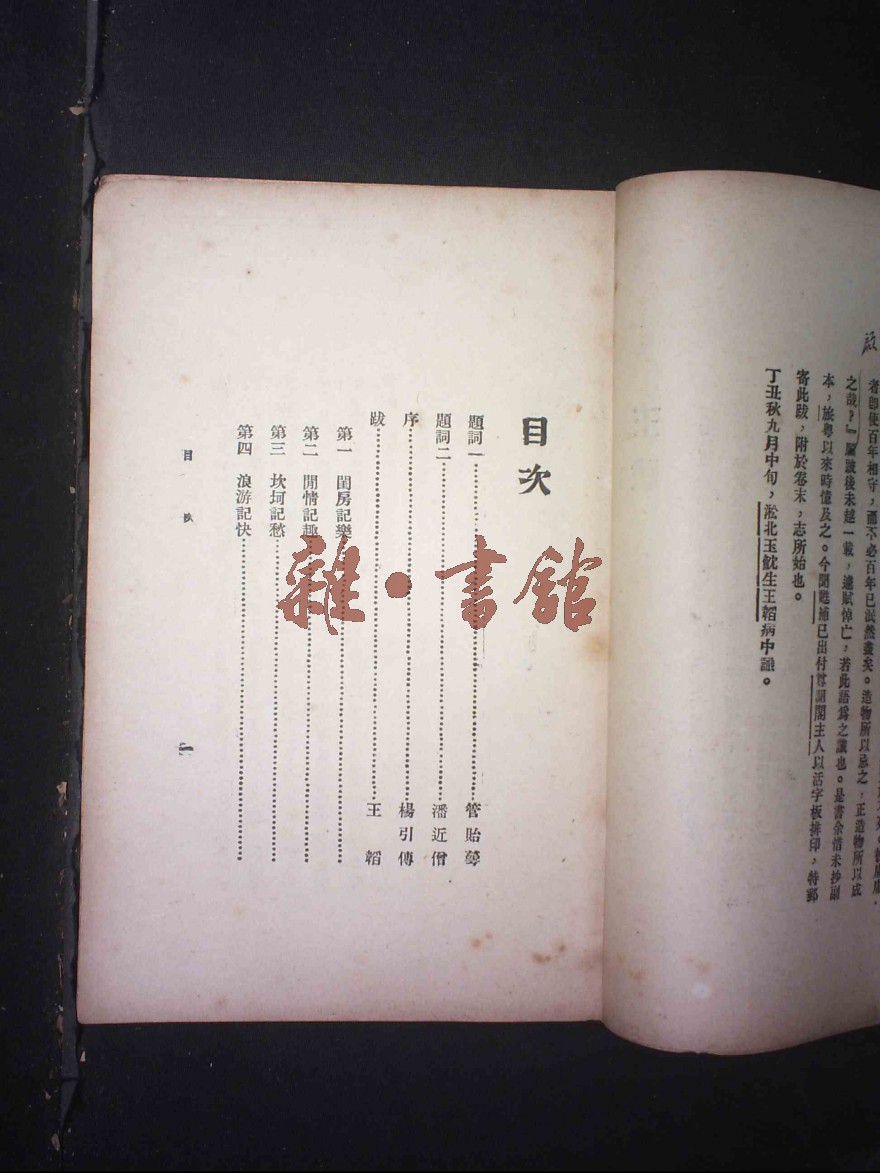 跋
者卽使百年相守，而不必百年已泯然盡矣。造物所以忌之，正造物所以成
之哉？』顧跋後未越一載，遽賦悼亡，若此語爲之讖也。是書余惜未抄副
本，旅粵以來時憶及之。今聞甦補已出付尊聞閣主人以活字板排印，特郵
寄此跋，附於卷末，志所始也。
丁丑秋九月中旬，淞北玉魫生王韜病中識。
目次
題詞一………………管貽葄
題詞二………………潘近僧
序………………楊引傳
跋………………王韜
第一 閨房記樂………………
第二 閒情記趣………………
第三 坎坷記愁………………
第四 浪游記快………………
目次
一
雜·書館